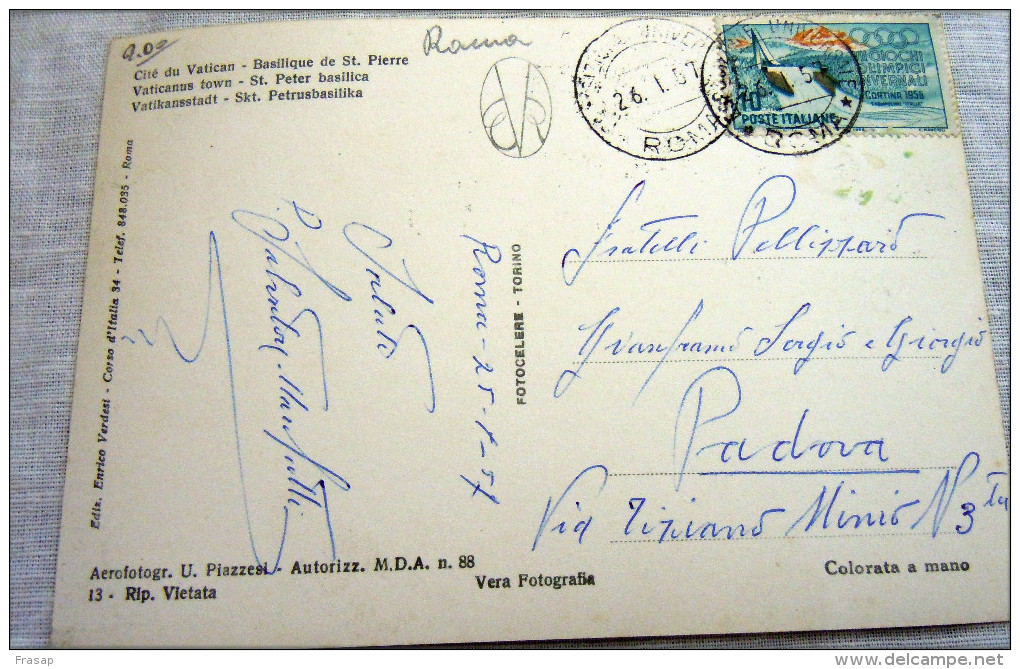 Roma
Cité du Vatican - Basilique de St. Pierre
Vaticanus town - St. Peter basilica
Vatikansstadt - Skt. Petrusbasilika
26.1.57
ROMA
ROMA
GIOCHI
OLIMPICI
INVERNALI
CORTINA 1956
POSTE ITALIANE
Ediz. Enrico Verdesi - Corso d'Italia 34 - Telef. 848.035 - Roma
Roma - 25-1-57
Saluti
FOTOCELERE - TORINO
Fratelli Pellizzaro
Gianfranco Sergio e Giorgio
Padova
Via Tiziano Minio N 3
Aerofotogr. U. Piazzesi - Autorizz. M.D.A. n. 88
13 - Rip. Vietata
Vera Fotografia
Colorata a mano
Frasap
www.delcampe.net